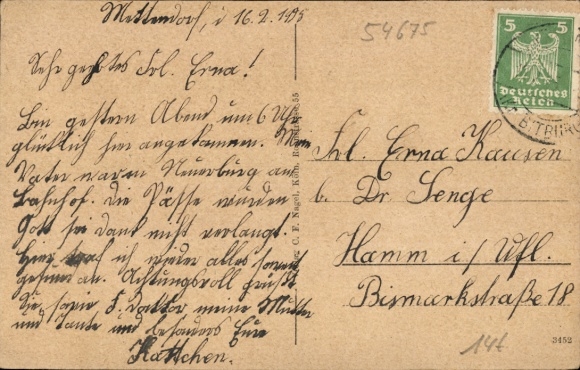 Mettendorf, d 16.2.195
Sehr geehrtes Frl. Erna!
Bin gestern Abend um 6 Uhr
glücklich hier angekommen. Mein
Vater waren Neuerburg am
Bahnhof. Die Pässe wurden
Gott sei dank nicht verlangt.
Hier traf ich wieder alles
an. Achtungsvoll grüßt
Sie, sowie F. Doktor meine Mutter
und Tante und besonders Eure
Kättchen.
54675
5 5
Deutsches
Reich
Frl. Erna Kausen
b. Dr Senge
Hamm i/Wfl.
Bismarkstraße 18
C. F. Nagel, Köln
3452
14t